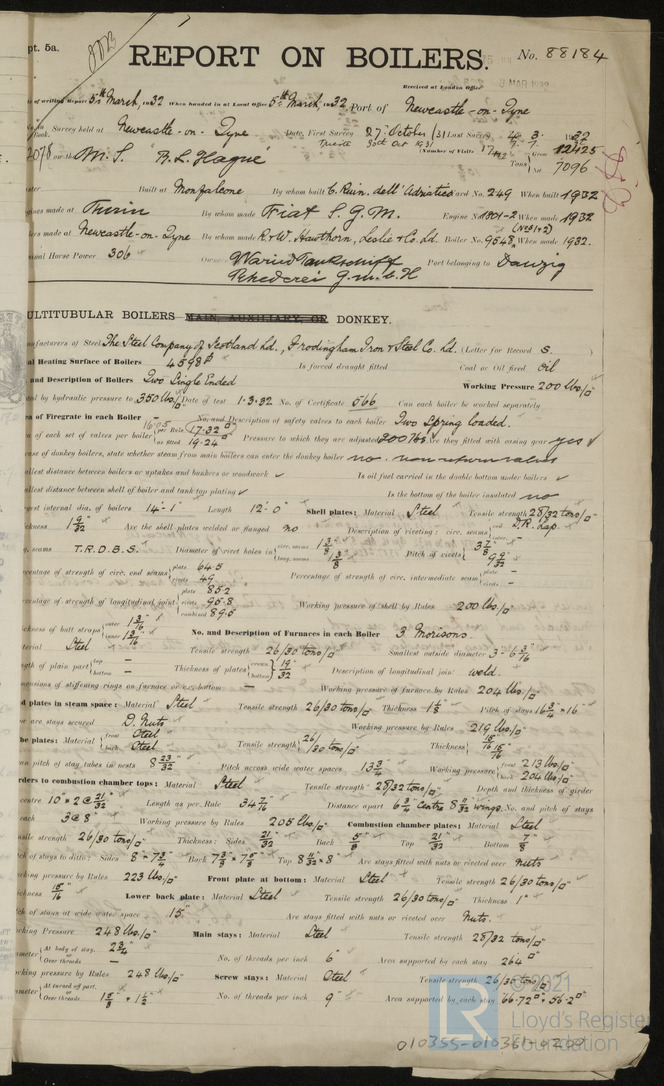 pt. 5a.
REPORT ON BOILERS.
No. 88184
Received at London Office
8 MAR 1932
of writing Report 5th March, 1932 When handed in at Local Office 5th March, 1932 Port of Newcastle-on-Tyne
Survey held at Newcastle-on-Tyne Date, First Survey 27. October 1931 Last Survey 4. 3. 1932
Trieste 30th Oct 1931 (Number of Visits 17
on the M.S. "R.L. Hague" Tons Gross 12425 Net 7096
Built at Monfalcone By whom built C. Riun. dell' Adriatico Yard No. 249 When built 1932
gines made at Turin By whom made Fiat S.G.M. Engine No. 1801-2 When made 1932
ers made at Newcastle-on-Tyne By whom made R & W. Hawthorn, Leslie & Co. Ld. Boiler No. 9548 (Nos 1 & 2) When made 1932.
Horse Power 306 Owners Waried Tankschiff Rhederei G.m.b.H Port belonging to Danzig
ULTITUBULAR BOILERS MAIN, AUXILIARY, OR DONKEY.
nufacturers of Steel The Steel Company of Scotland Ld., Frodingham Iron & Steel Co. Ld. (Letter for Record S.)
al Heating Surface of Boilers 4598 Is forced draught fitted Coal or Oil fired oil
and Description of Boilers Two Single Ended Working Pressure 200 lbs/□"
by hydraulic pressure to 350 lbs/□" Date of test 1.3.32 No. of Certificate 566 Can each boiler be worked separately
of Firegrate in each Boiler - No. and Description of safety valves to each boiler Two Spring loaded.
of each set of valves per boiler per Rule 17.32 as fitted 19.24 Pressure to which they are adjusted 200 lbs Are they fitted with easing gear yes
case of donkey boilers, state whether steam from main boilers can enter the donkey boiler no. non return valves
allest distance between boilers or uptakes and bunkers or woodwork ✓ Is oil fuel carried in the double bottom under boilers ✓
allest distance between shell of boiler and tank top plating ✓ Is the bottom of the boiler insulated no
gest internal dia. of boilers 14'-1" Length 12'-0" Shell plates: Material Steel Tensile strength 28/32 tons/□"
ckness 1 9/32 Are the shell plates welded or flanged no Description of riveting: circ. seams end D.R. Lap.
seams T.R.D.B.S. Diameter of rivet holes in circ. seams 1 3/8 long. seams 1 3/8 Pitch of rivets 3 7/8 9 9/32
centage of strength of circ. end seams plate 64.5 rivets 49 Percentage of strength of circ. intermediate seam plate - rivets -
centage of strength of longitudinal joint plate 85.2 rivets 90.8 combined 89.6 Working pressure of shell by Rules 200 lbs/□"
ckness of butt straps outer 1 3/16 inner 1 3/16 No. and Description of Furnaces in each Boiler 3 Morisons.
terial Steel Tensile strength 26/30 tons/□" Smallest outside diameter 3'-6 3/16"
gth of plain part top - bottom - Thickness of plates crown bottom 19/32 Description of longitudinal joint weld.
ensions of stiffening rings on furnace or c.c. bottom - Working pressure of furnace by Rules 204 lbs/□"
d plates in steam space: Material Steel Tensile strength 26/30 tons/□" Thickness 1 1/8 Pitch of stays 16 3/4 × 16"
are stays secured D. Nuts Working pressure by Rules 219 lbs/□"
be plates: Material front Steel back Steel Tensile strength 26/30 tons/□" Thickness 15/16 15/16
an pitch of stay tubes in nests 8 23/32 Pitch across wide water spaces 13 3/4 Working pressure front 213 lbs/□" back 204 lbs/□"
rders to combustion chamber tops: Material Steel Tensile strength 28/32 tons/□" Depth and thickness of girder
centre 10" × 2 @ 21/32 Length as per Rule 34 7/16 Distance apart 6 3/4 centre 8 11/32 wings. No. and pitch of stays
each 3 @ 8" Working pressure by Rules 205 lbs/□" Combustion chamber plates: Material Steel
sile strength 26/30 tons/□" Thickness: Sides 21/32 Back 5/8 Top 21/32 Bottom 7/8
ch of stays to ditto: Sides 8" × 7 3/4 Back 7 3/8 × 7 5/8 Top 8 11/32 × 8 Are stays fitted with nuts or riveted over nuts
rking pressure by Rules 223 lbs/□" Front plate at bottom: Material Steel Tensile strength 26/30 tons/□"
ckness 15/16 Lower back plate: Material Steel Tensile strength 26/30 tons/□" Thickness 1"
ch of stays at wide water space 15" Are stays fitted with nuts or riveted over Nuts.
rking Pressure 248 lbs/□" Main stays: Material Steel Tensile strength 28/32 tons/□"
ameter At body of stay, 2 3/4 Over threads - No. of threads per inch 6" Area supported by each stay 264 □"
rking pressure by Rules 248 lbs/□" Screw stays: Material Steel Tensile strength 26/30 tons/□"
ameter At turned off part, Over threads 1 5/8" & 1 1/2" No. of threads per inch 9" Area supported by each stay 66.72 □" & 56.2 □"
© 2021
LR
Lloyd's Register
Foundation
010355-010361-0200